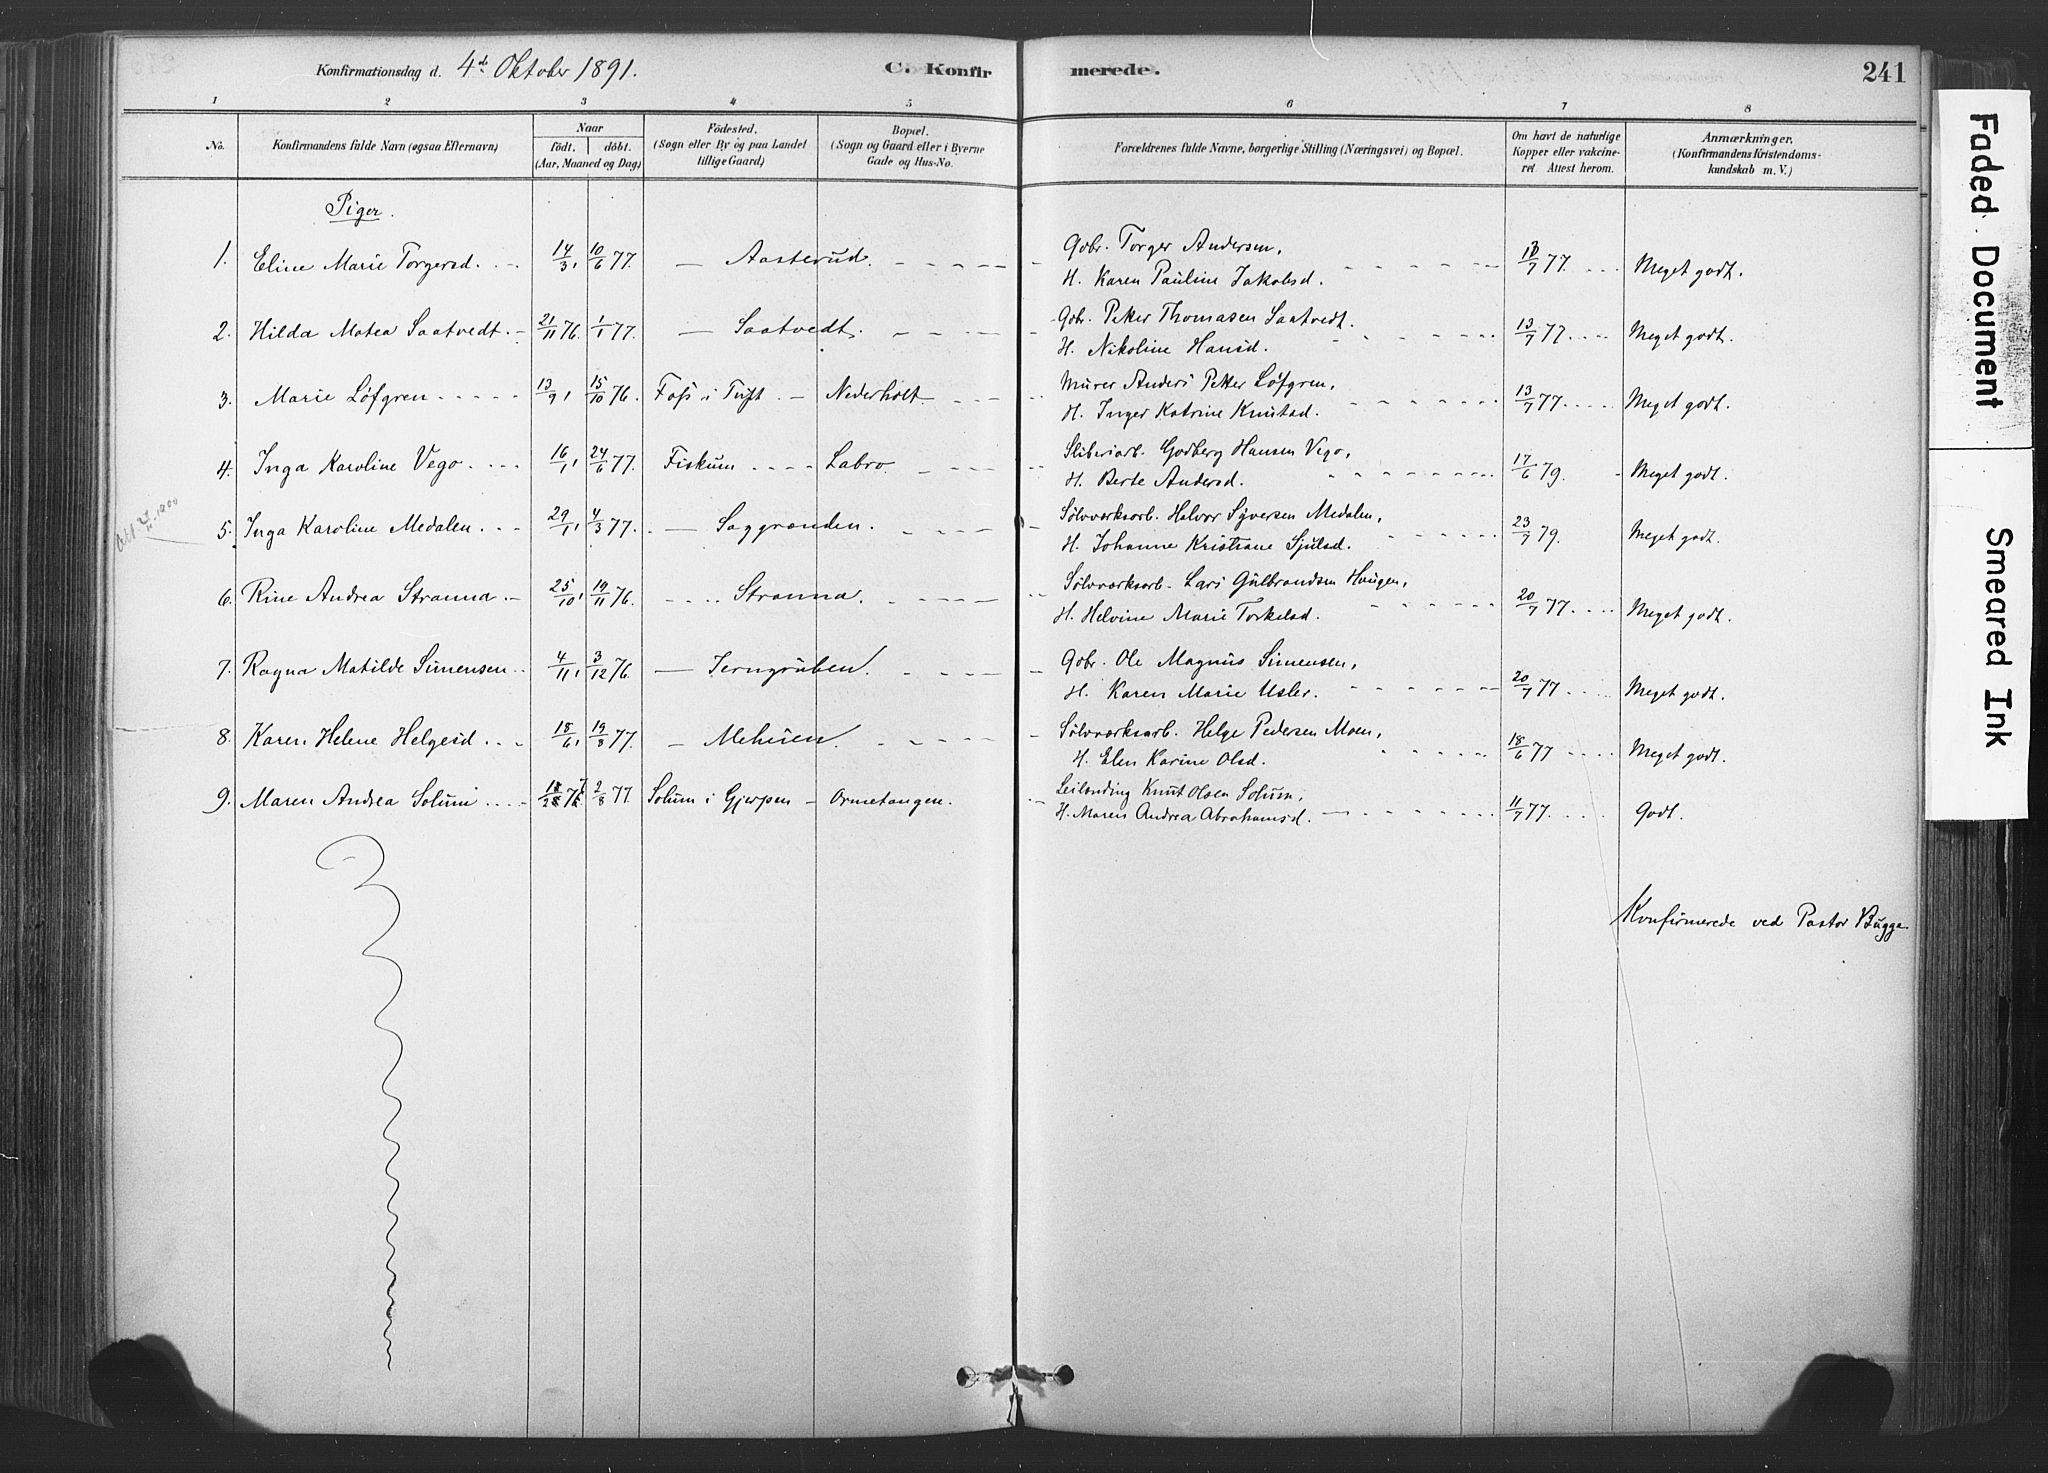 Konfirmationsdag d. 4de Oktober 1891. C. Konfirmerede. 241
1 2 3 4 5 6 7 8
No. Konfirmandens fulde Navn (ogsaa Efternavn) Naar født. døbt. (Aar, Maaned og Dag) Fødested. (Sogn eller By og paa Landet tillige Gaard) Bopæl. (Sogn og Gaard eller i Byerne Gade og Hus-No. Forældrenes fulde Navne, borgerlige Stilling (Næringsvei) og Bopæl. Om havt de naturlige Kopper eller vakcineret. Attest herom. Anmærkninger. (Konfirmandens Kristendomskundskab m. V.)
Piger.
1. Eline Marie Torgersd. 14/3, 10/6 77. — Aasterud. Gbr. Torger Andersen, H. Karen Pauline Jakobsd. 13/7 77. Meget godt.
2. Hilda Matea Saatvedt. 21/11 76. 1/1 77. — Saatvedt. Gbr. Peter Thomasen Saatvedt. H. Nikoline Hansd. 13/7 77. Meget godt.
3. Marie Løfgren 13/9, 15/10 76. Foss i Tuft. Nederholt Murer Anders Petter Løfgren, H. Inger Katrine Knutsd. 13/7 77. Meget godt.
4. Inga Karoline Vego. 16/1, 24/6 77. Fiskum Labro. Sliberiarb. Godberg Hansen Vego, H. Berte Andersd. 17/6 79. Meget godt.
5. Inga Karoline Medalen. 29/1, 4/3 77. — Saggrenden. Sølvværksarb. Halvor Syversen Medalen, H. Johanne Kristiane Sjulsd. 23/7 79. Meget godt.
6. Rine Andrea Stranna. 25/10, 19/11 76. Stranna. Sølvværksarb. Lars Gulbrandsen Haugen, H. Helvine Marie Torkelsd. 20/7 77. Meget godt.
7. Ragna Matilde Simensen. 4/11, 3/12 76. — Jerngruben. Gbr. Ole Magnus Simensen, H. Karen Marie Usler. 20/7 77. Meget godt.
8. Karen Helene Helgesd. 18/6, 19/8 77. — Meheien. Sølvværksarb. Helge Pedersen Moen, H. Elen Karine Olsd. 18/6 77. Meget godt.
9. Maren Andrea Solum 2/8 77. Solum i Gjerpen — Ormetangen. Leilending Knut Olsen Solum, H. Maren Andrea Abrahamsd. 11/7 77. Godt.
Konfirmerede ved Pastor Bugge.
Faded Document
Smeared Ink